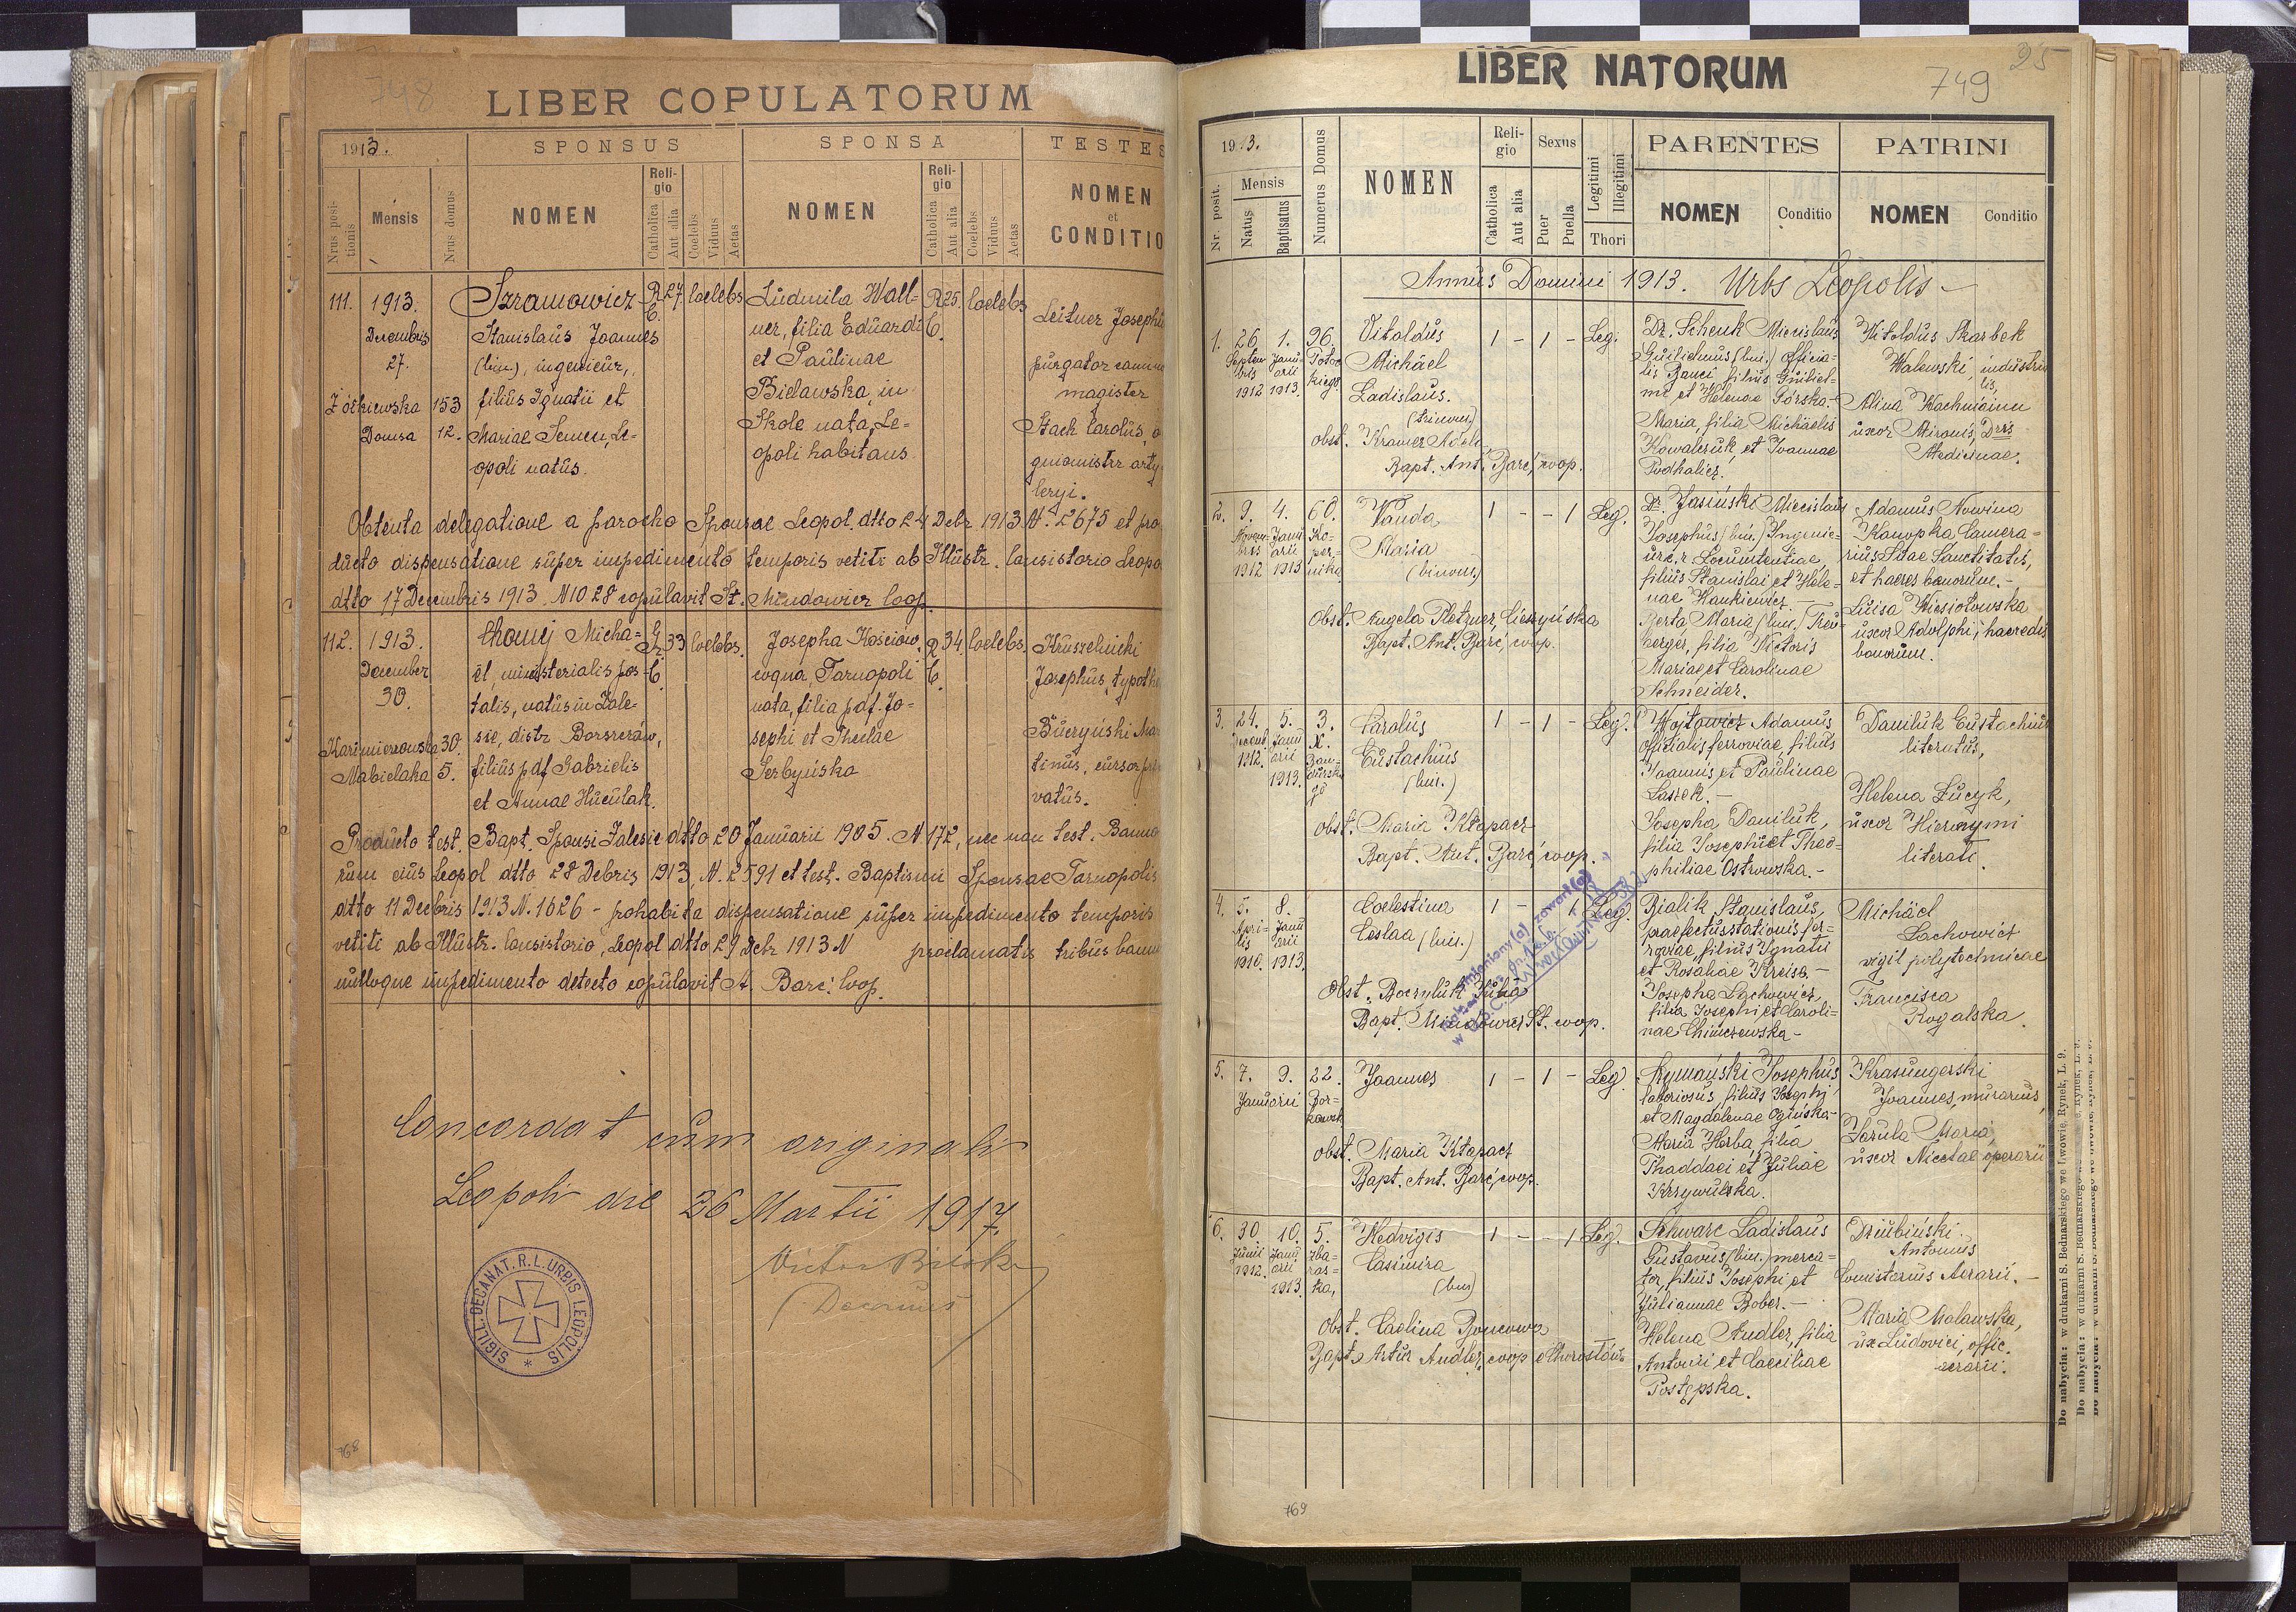 748
LIBER COPULATORUM
1913.
SPONSUS
SPONSA
TESTES
Nrus posi-
tionis
Mensis
Nrus domus
NOMEN
Reli-
gio
Catholica
Aut alia
Coelebs
Viduus
Aetas
NOMEN
Reli-
gio
Catholica
Aut alia
Coelebs
Viduus
Aetas
NOMEN
et
CONDITIO
111.
1913.
Decembris
27.
Żółkiewska 153
Domsa 12.
Szramowicz
Stanislaus Joannes
(bin.), ingenieur,
filius Ignatii et
Mariae Semen, Le-
opoli natus.
R.
C.
27.
coelebs
Ludmila Wall-
ner, filia Eduardi
et Paulinae
Bielawska, in
Skole nata, Le-
opoli habitans
R.
C.
25.
coelebs
Leitner Josephus
purgator
magister
Stach Carolus,
leryi.
Obtenta delegatione a parocho Sponsae Leopol. dtto 24 Debr. 1913 N. 2675 et pro
ducto dispensatione super impedimento temporis vetiti ab Illustr. Consistorio Leopo
dtto 17 Decembris 1913. N 1028 copulavit St. Mindowicz Coop.
112.
1913.
December
30.
Kazimierzowska 30.
Nabielaka 5.
Chomyj Micha-
el, ministerialis pos-
talis, natus in Zale-
sie, distr. Borszczów,
filius pdf Gabrielis
et Annae Huculak.
G.
C.
33
coelebs.
Josepha Kościów,
Tarnopoli
nata, filia pdf. Jo-
sephi et Theclae
Serbyńska
R.
C.
34.
coelebs.
Kruszelnicki
Josephus,
Buczyński Mar
tinus, cursor pri
vatus.
Producto test. Bapt. Sponsi Zalesie dtto 20 Januarii 1905. N 172, nec non test. Banno
rum eius Leopol dtto 28 Debris 1913, N. 2591 et test. Baptismi Sponsae Tarnopolis
dtto 11 Decbris 1913 N. 1626 - prohabita dispensatione super impedimento temporis
vetiti ab Illustr. Consistorio, Leopol dtto 29 Debr 1913 N proclamatis tribus bannis
nulloque impedimento detecto copulavit A. Barć Coop.
Concordat cum originali
Leopoli die 26 Martii 1917.
Victor
Decanus
SIGILL. DECANAT. R. L. URBIS LEOPOLIS
768
LIBER NATORUM
749
25
1913.
Nr. posit.
Mensis
Natus
Baptisatus
Numerus Domus
NOMEN
Reli-
gio
Catholica
Aut alia
Sexus
Puer
Puella
Legitimi
Illegitimi
Thori
PARENTES
NOMEN
Conditio
PATRINI
NOMEN
Conditio
Annus Domini 1913. Urbs Leopolis -
1.
26.
Septem
bris
1912
1.
Janu
arii
1913.
96.
Potoc
kiego
Vitoldus
Michael
Ladislaus.
(trinom.)
obst. Kramer Adel-
Bapt. Ant. Barć, coop.
1 - 1 - Leg.
Dr. Schenk Miecislaus
Guilielmus (bin.) officia-
lis Banci filius Guiliel-
mi et Helenae Górska.-
Maria, filia Michaelis
Kowalczuk, et Joannae
Podhalicz.
Witoldus Skarbek
Walewski, industria
lis,
Alina
uxor Mironis, Dris
Medicinae.
2.
9.
Novem-
bris
1912
4.
Janu
arii
1913
60.
Ko-
per-
nika
Vanda
Maria
(binom.)
Obst. Angela Pletzner, Cieszyńska
Bapt. Ant. Barć, coop.
1 - - 1 Leg.
Dr. Jasiński Miecislaus
Josephus (bin.) Ingenie-
ur c. r. Locumtentiae,
filius Stanislai et Hele-
nae Hankiewicz.-
Berta Maria (bin.) Treu-
berger, filia Victoris
Mariae et Carolinae
Schneider.
Adamus Nowina
Konopka Camera-
rius Stae Sanctitatis,
et haeres bonorum.-
Luisa Wiesiołowska
uxor Adolphi, haeredis
bonorum.
3.
24.
Decemb.
1912.
5.
Janu
arii
1913.
3.
N.
Carolus
Eustachius
(bin.)
obst. Maria Kłapacz
Bapt. Ant. Barć, coop.
1 - 1 - Leg.
Wojtowicz Adamus
officialis ferroviae, filius
Joannis et Paulinae
Laszek.-
Josepha Daniluk,
filia Josephi et Theo-
philiae Ostrowska.-
Daniluk Eustachius
literatus,
Helena Łucyk,
uxor Hieronymi
literati.
4.
5.
Apri-
lis
1910.
8.
Janu
arii
1913.
Coelestina
Ceslaa (bin.)
Obst. Boczyluk Julia
Bapt. Mindowicz St. coop.
1 - - 1 Leg.
Bialik Stanislaus,
praefectus stationis fer-
roviae, filius Ignatii
et Rosaliae Kreisa.-
Josepha Lachowicz,
filia Josephi et Caroli-
nae
Michael
Lachowicz
vigil polytechnicae
Francisca
Rogalska.
5.
7.
9.
Januarii
22.
Bor-
kowsk
Joannes
obst. Maria Kłapacz
Bapt. Ant. Barć, coop.
1 - 1 - Leg.
Szymański Josephus
laboriosus, filius Josephi
et Magdalenae Ogińska-
Maria Horba, filia
Thaddaei et Juliae
Krzywulska.
Krasungerski
Joannes, murarius,
Jarula Maria,
uxor Nicetae operarii
6.
30.
Junii
1912.
10.
Janu
arii
1913.
5.
Zba-
ras-
ka,
Hedvigis
Casimira
(bin)
Obst. Bapt. Artur Andler, coop
1 - - 1 Leg.
Schwarc Ladislaus
Gustavus (bin.) merca-
tor, filius Josephi et
Juliannae Bober.-
Helena Andler, filia
Antonii et Caeciliae
Postępska.
Dziubiński
Antonius
Aerarii.-
Maria Malawska,
ux Ludovici, offic.
aerarii.
769
Do nabycia: w drukarni S. Bednarskiego we Lwowie, Rynek, L. 9.